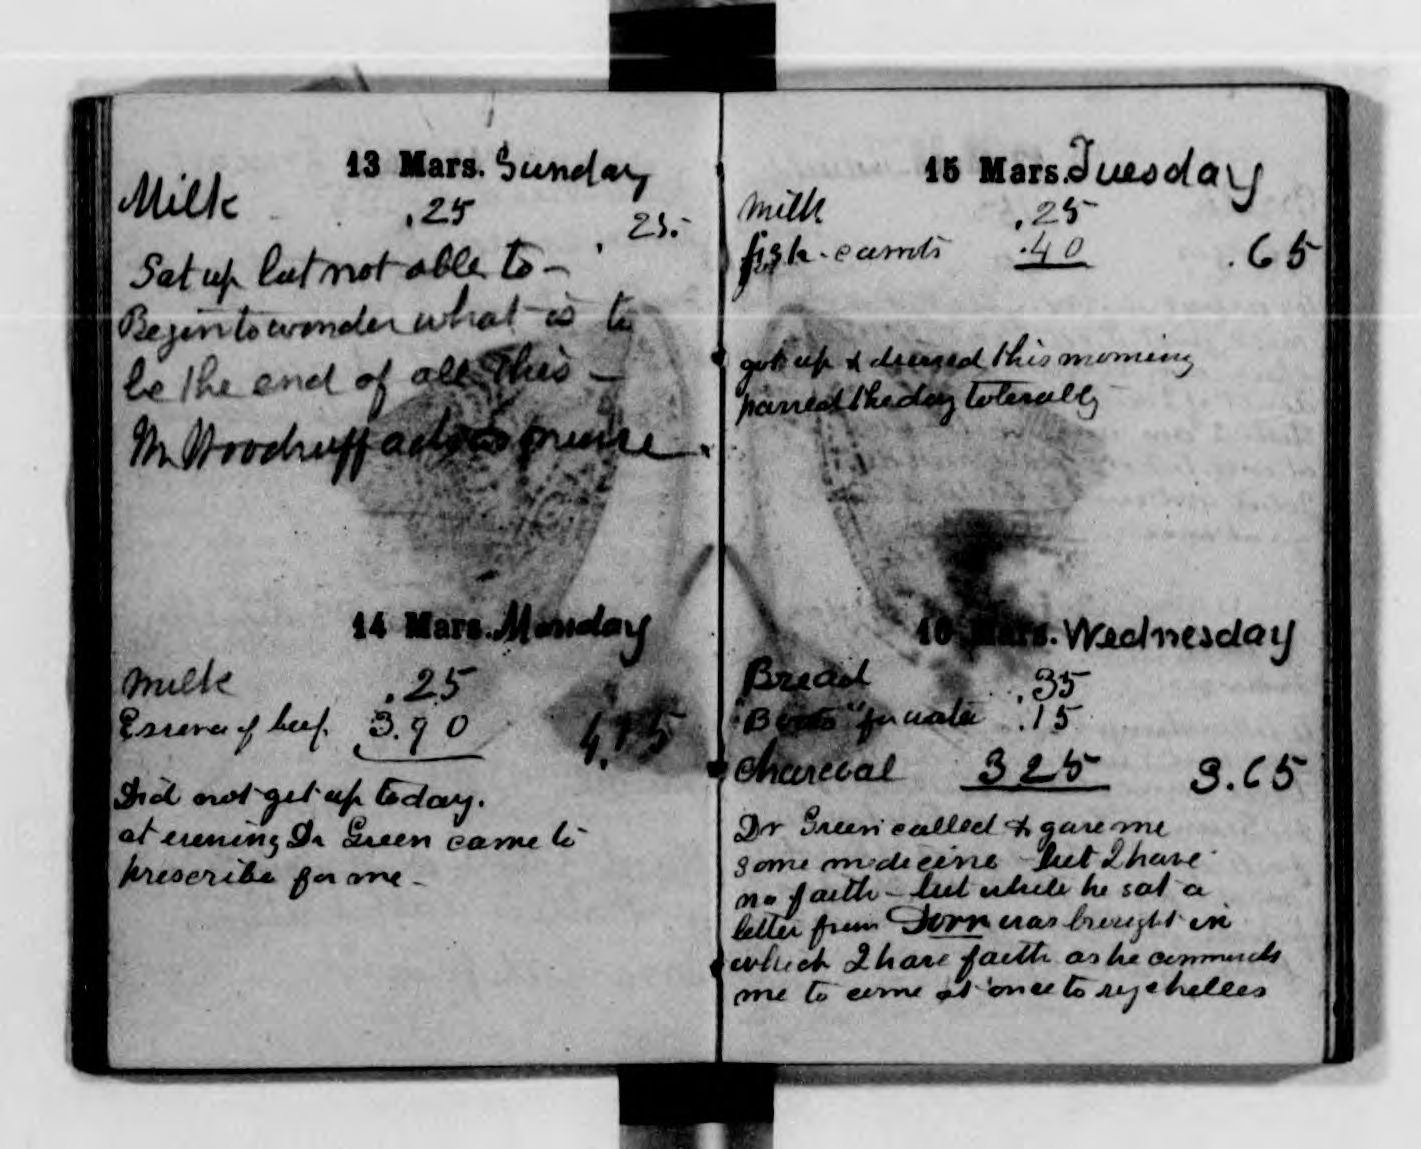 13 Mars. Sunday
Milk .25 .25
Sat up but not able to –
Begin to wonder what is to
be the end of all this –
Mr Woodruff advises
14 Mars. Monday
Milk .25
Essence of beef. 3.90 4.15
Did not get up today.
at evening Dr Green came to
prescribe for me –
15 Mars. Tuesday
Milk .25
fish - carrots .40 .65
got up & dressed this morning
passed the day tolerably
16 Mars. Wednesday
Bread .35
for water .15
Charcoal 325 3.65
Dr Green called & gave me
some medicine – but I have
no faith – but while he sat a
letter from Dorr was brought in
which I have faith as he commands
me to come at once to